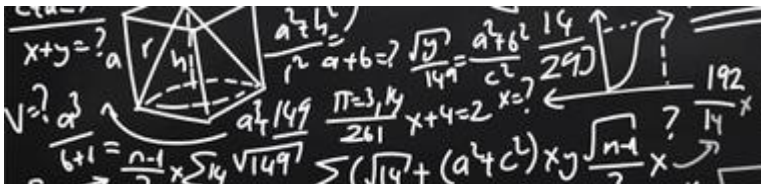 x+y=? a r h a²+b²/r² =? a+6=? √y/149 = a²+6²/c² 14/290
V=? a³/6+1 = a²+149 π=3,14/261 x+4=2 x=? 192/14 x
n-1/2 x ∑14 √149 ∑(√14 + (a²+c²) xy √n-1/2 x ?